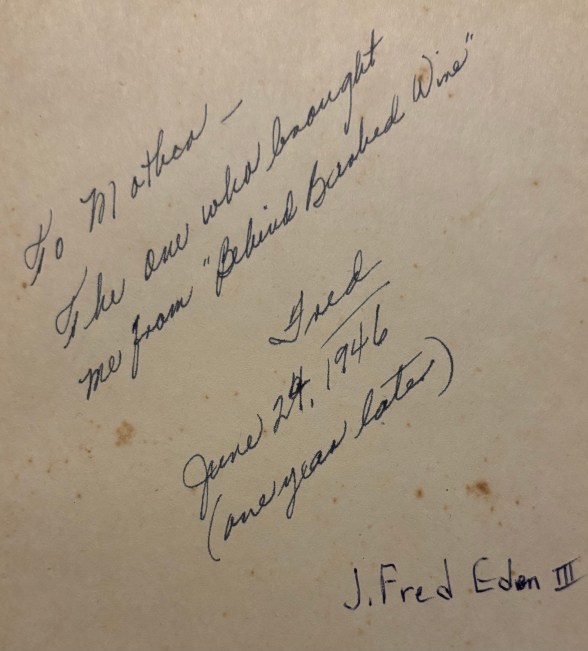 To Mother –
The one who brought
me from "Behind Barbed Wire"
Fred
June 24, 1946
(one year later)
J. Fred Eden III